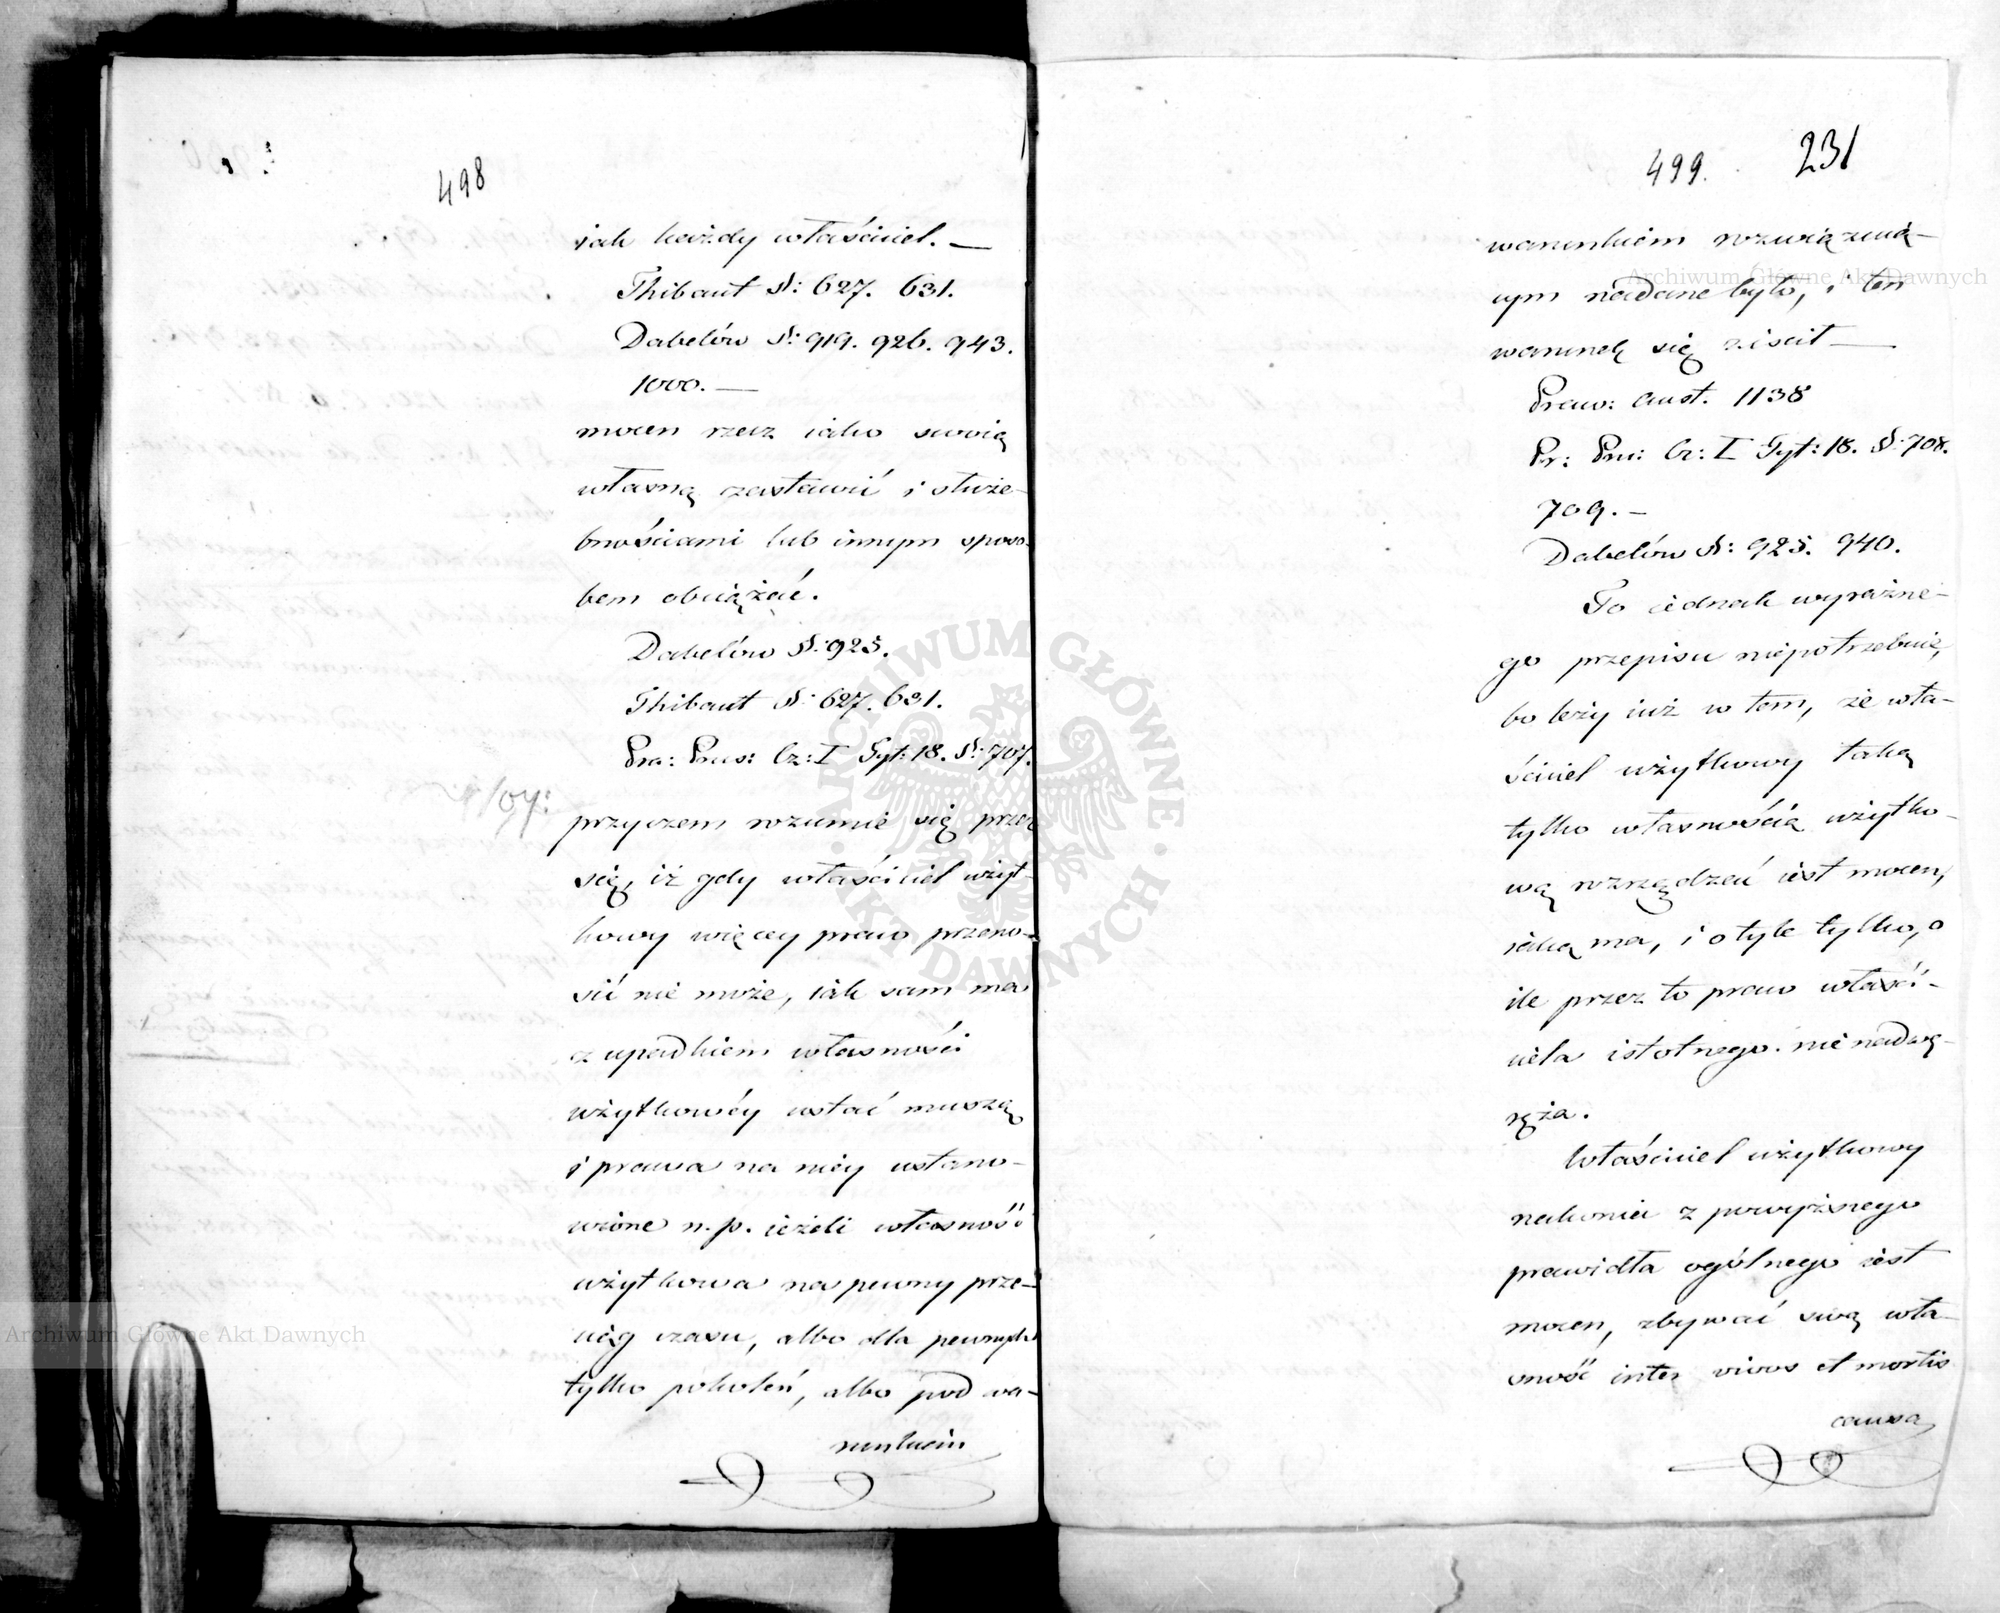 498
iak każdy właściciel. —
Thibaut §: 627. 631.
Dabelów §: 919. 926. 943.
1000. —
mocen rzecz iako swoią
własną zastawić i służe-
bnościami lub innym sposo-
bem obciążać.
Dabelów §: 925.
Thibaut §: 627. 631.
Pra: Prus: Cz: I Tyt: 18. §: 707.
przyczem rozumie się przez
się, iż gdy właściciel użyt-
kowy więcey praw przeno-
sić nie może, iak sam ma
z upadkiem własności
użytkowéy ustać muszą
i prawa na niey ustano-
wione n. p. ieżeli własność
użytkowa na pewny prze-
ciąg czasu, albo dla pewnych
tylko pokoleń, albo pod wa-
runkiem
499. 231
warunkiem rozwiązuią-
cym nadane było, i ten
warunek się ziścił —
Praw: aust. 1138
Pr: Pru: Cz: I Tyt: 18. §: 708.
709. —
Dabelów §: 925. 940.
To iednak wyraźne-
go przepisu niepotrzebuie,
bo leży iuż w tem, że wła-
ściciel użytkowy taką
tylko własnością użytko-
wą rozrządzać iest mocen,
iaką ma, i o tyle tylko, o
ile przez to praw właści-
ciela istotnego nie nadwę-
ręża.
Właściciel użytkowy
nakoniec z powyższego
prawidła ogólnego iest
mocen, zbywać swą wła-
sność inter vivos et mortis
causa,
Archiwum Główne Akt Dawnych
Archiwum Główne Akt Dawnych
ARCHIWUM GŁÓWNE · AKT DAWNYCH ·